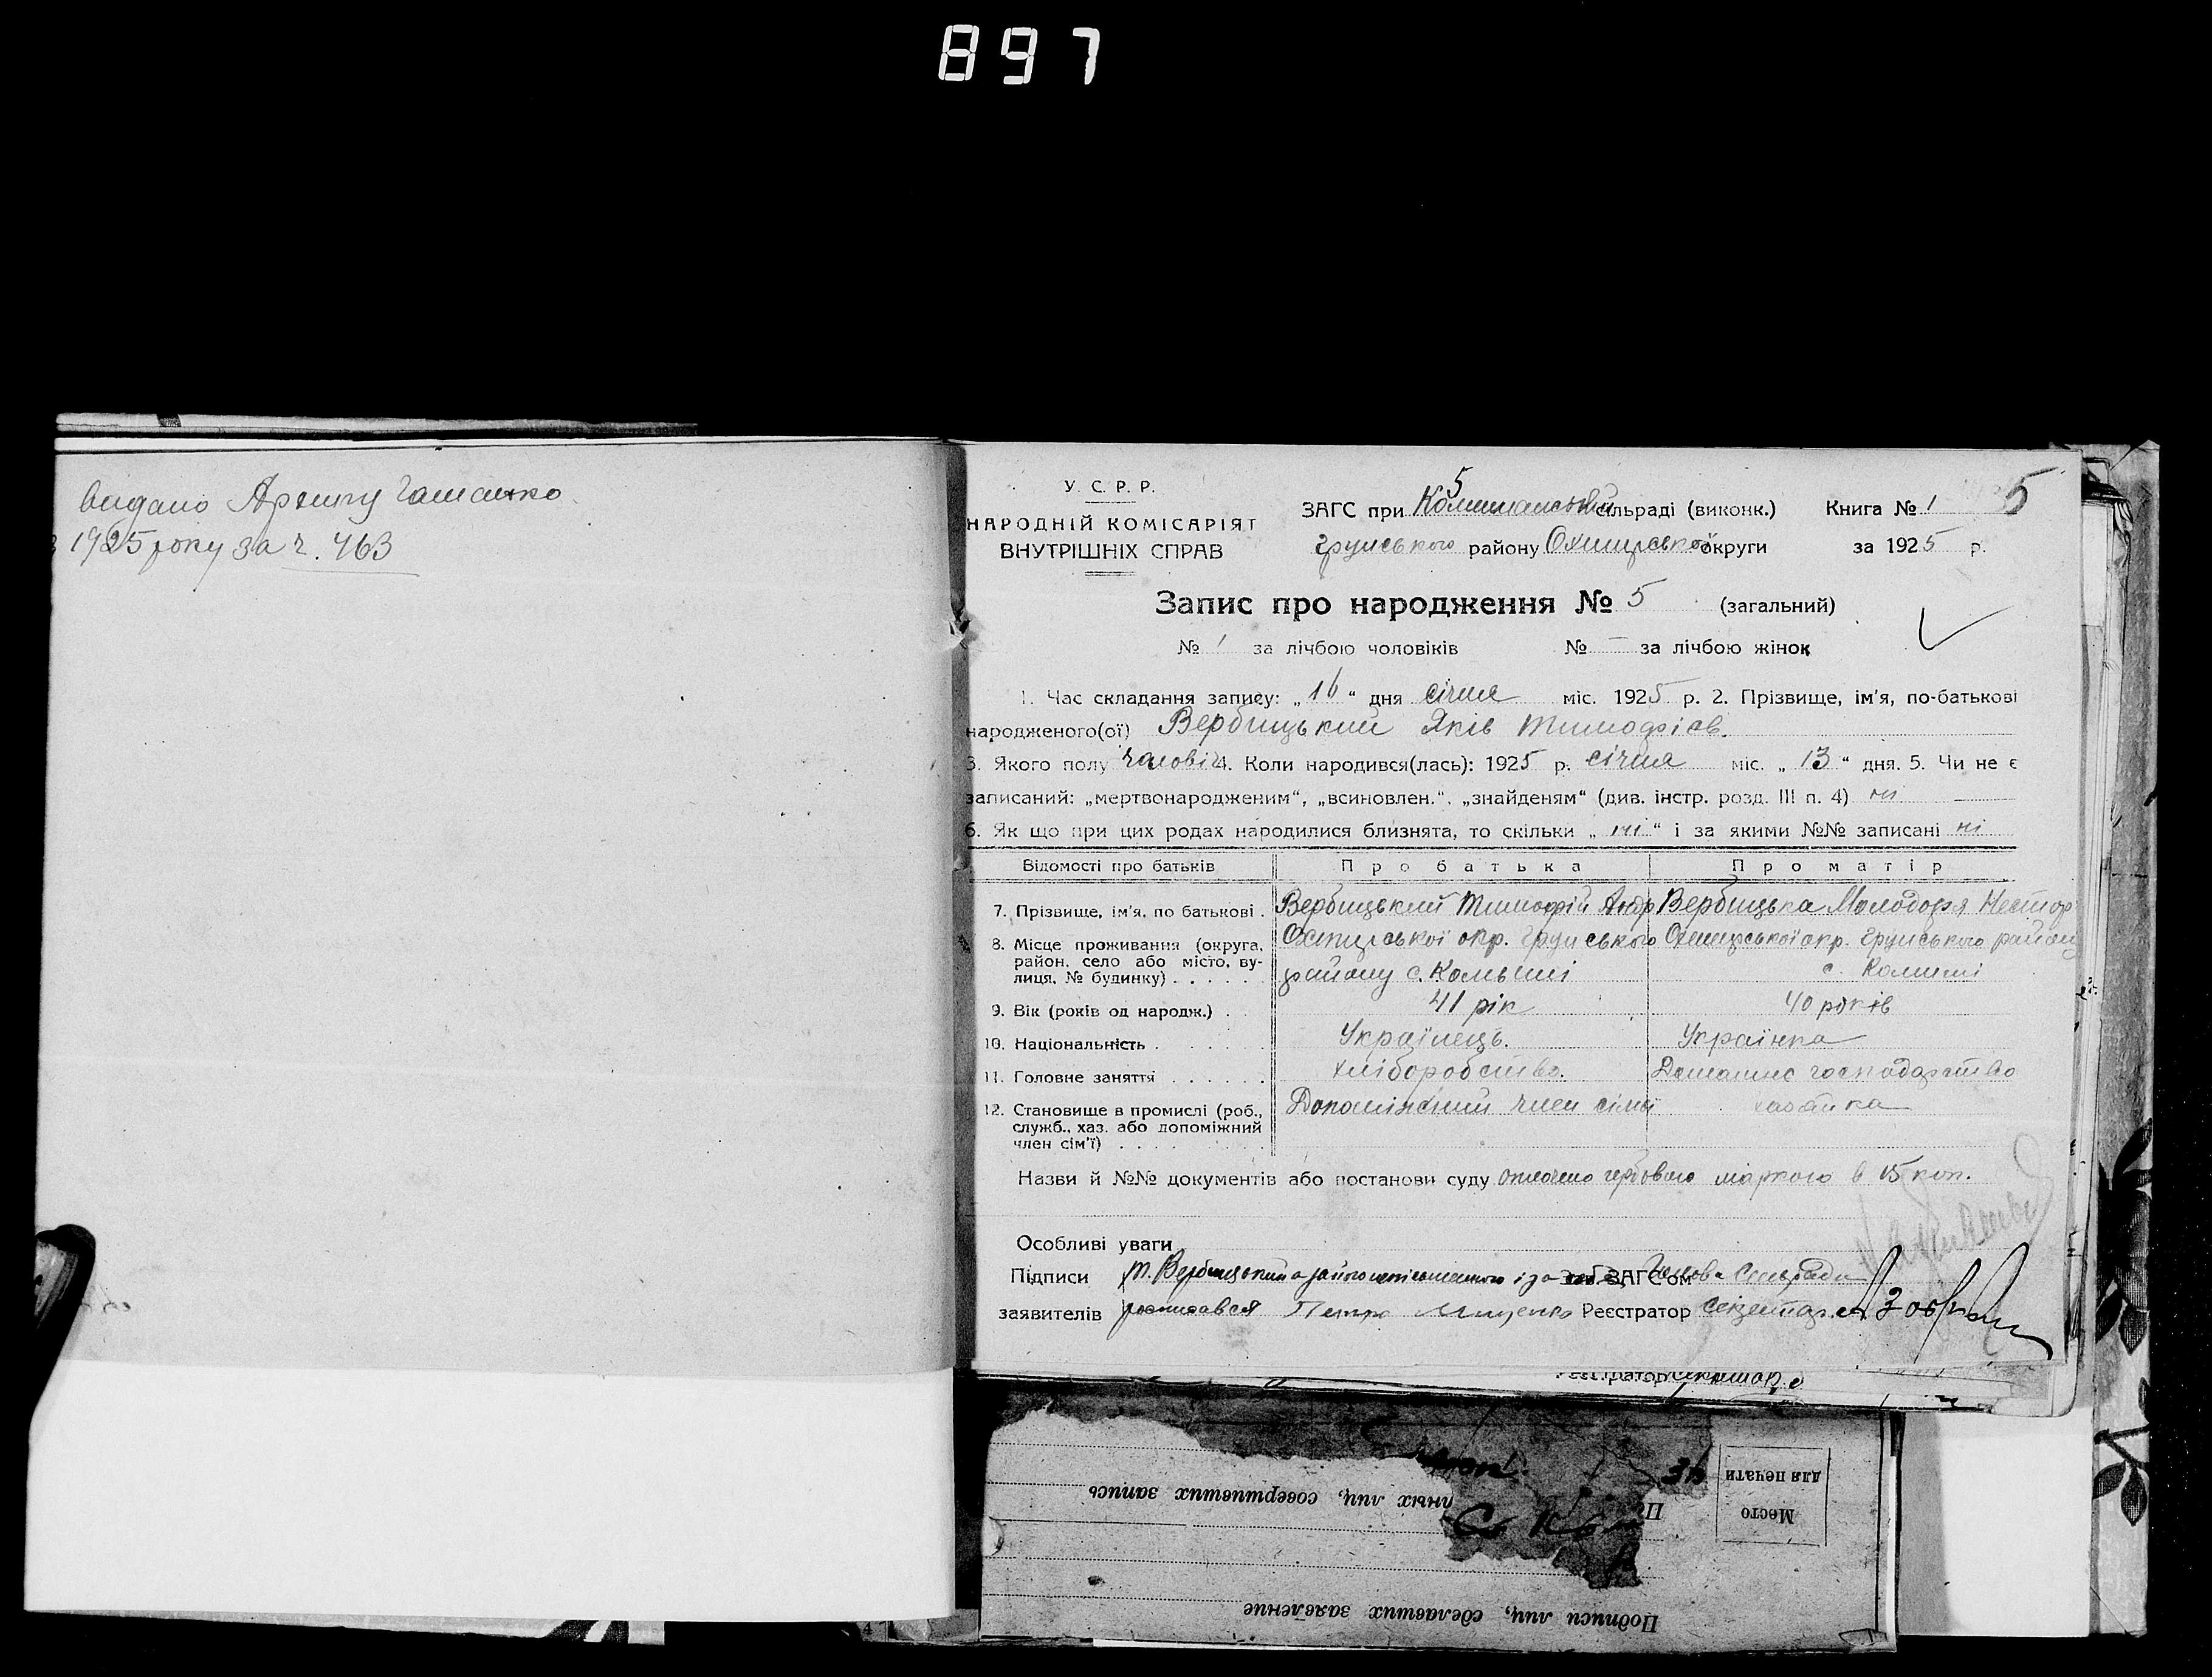 897
видано Архипу Гашенко
1925 року за ч. 463
У. С. Р. Р.
НАРОДНІЙ КОМІСАРІЯТ
ВНУТРІШНІХ СПРАВ
5
ЗАГС при сільраді (виконк.) Книга № 1 5
Грунського району Охтирської округи за 1925 р.
Запис про народження № 5 (загальний)
№ 1 за лічбою чоловіків № — за лічбою жінок
1. Час складання запису: „16“ дня січня міс. 1925 р. 2. Прізвище, ім'я, по-батькові
народженого(ої) Вербицький Яків Тимофієв.
3. Якого полу чоловіч 4. Коли народився(лась): 1925 р. січня міс. „13“ дня. 5. Чи не є
записаний: „мертвонародженим“, „всиновлен.“, „знайденям“ (див. інстр. розд. III п. 4) ні
6. Як що при цих родах народилися близнята, то скільки „ні“ і за якими №№ записані ні
Відомості про батьків Про батька Про матір
7. Прізвище, ім'я, по батькові . Вербицький Тимофій Андр Вербицька Нестор
8. Місце проживання (округа, район, село або місто, вулиця, № будинку) . . . . . Охтирської окр. Грунського Охтирської окр. Грунського району
району с. Комыші с. Комиші
9. Вік (років од народж.) . 41 рік 40 років
10. Національність . . . . . . Українець. Українка
11. Головне заняття . . . . . . хліборобство. Домашнє господарство
12. Становище в промислі (роб., служб., хаз. або допоміжний член сім'ї) . . . . . . . . Допоміжний член сімьї
Назви й №№ документів або постанови суду оплачено гербовою маркою в 15 коп.
Особливі уваги
Підписи Т. Вербицький а за його неписьменного і за себе Зав. ЗАГС'ом Голова Сільради
заявителів росписався Петро Реєстратор секретар
Реєстратор
Место
для печати
Подписи лиц, сделавших заявление
лиц, совершивших запись